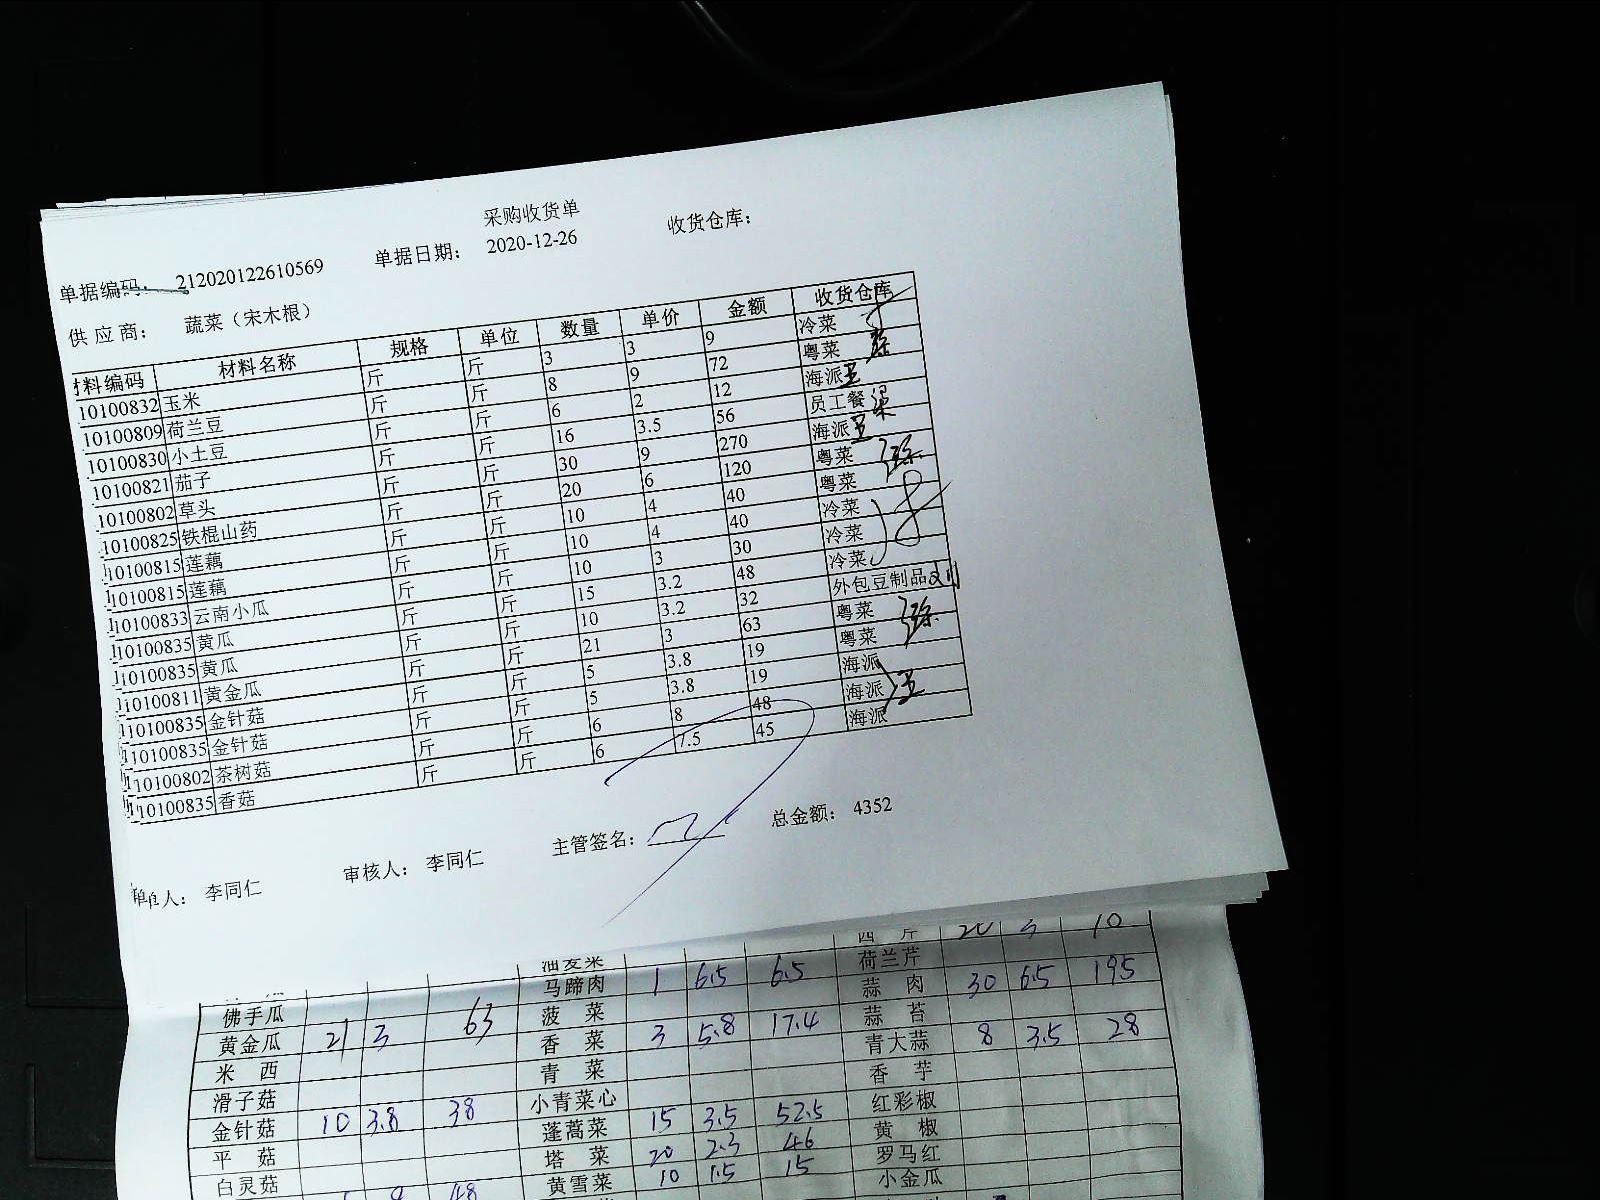 采购收货单
单据编码： 212020122610569 单据日期： 2020-12-26 收货仓库：
供应商： 蔬菜（宋木根）
料编码 材料名称 规格 单位 数量 单价 金额 收货仓库
10100832 玉米 斤 斤 3 3 9 冷菜
10100809 荷兰豆 斤 斤 8 9 72 粤菜
10100830 小土豆 斤 斤 6 2 12 海派 王
10100821 茄子 斤 斤 16 3.5 56 员工餐
10100802 草头 斤 斤 30 9 270 海派 王
10100825 铁棍山药 斤 斤 20 6 120 粤菜
10100815 莲藕 斤 斤 10 4 40 粤菜
10100815 莲藕 斤 斤 10 4 40 冷菜
10100833 云南小瓜 斤 斤 10 3 30 冷菜
10100835 黄瓜 斤 斤 15 3.2 48 冷菜
10100835 黄瓜 斤 斤 10 3.2 32 外包豆制品
10100811 黄金瓜 斤 斤 21 3 63 粤菜
10100835 金针菇 斤 斤 5 3.8 19 粤菜
10100835 金针菇 斤 斤 5 3.8 19 海派
10100802 茶树菇 斤 斤 6 8 48 海派 王
10100835 香菇 斤 斤 6 7.5 45 海派
单人： 李同仁 审核人： 李同仁 主管签名： 总金额： 4352
油麦菜 西芹 20 3 10
佛手瓜 马蹄肉 1 6.5 6.5 荷兰芹
黄金瓜 21 3 63 菠菜 蒜肉 30 6.5 195
米西 香菜 3 5.8 17.4 蒜苔
滑子菇 青菜 青大蒜 8 3.5 28
金针菇 10 3.8 38 小青菜心 香芋
平菇 蓬蒿菜 15 3.5 52.5 红彩椒
白灵菇 塔菜 20 2.3 46 黄椒
黄雪菜 10 1.5 15 罗马红
小金瓜